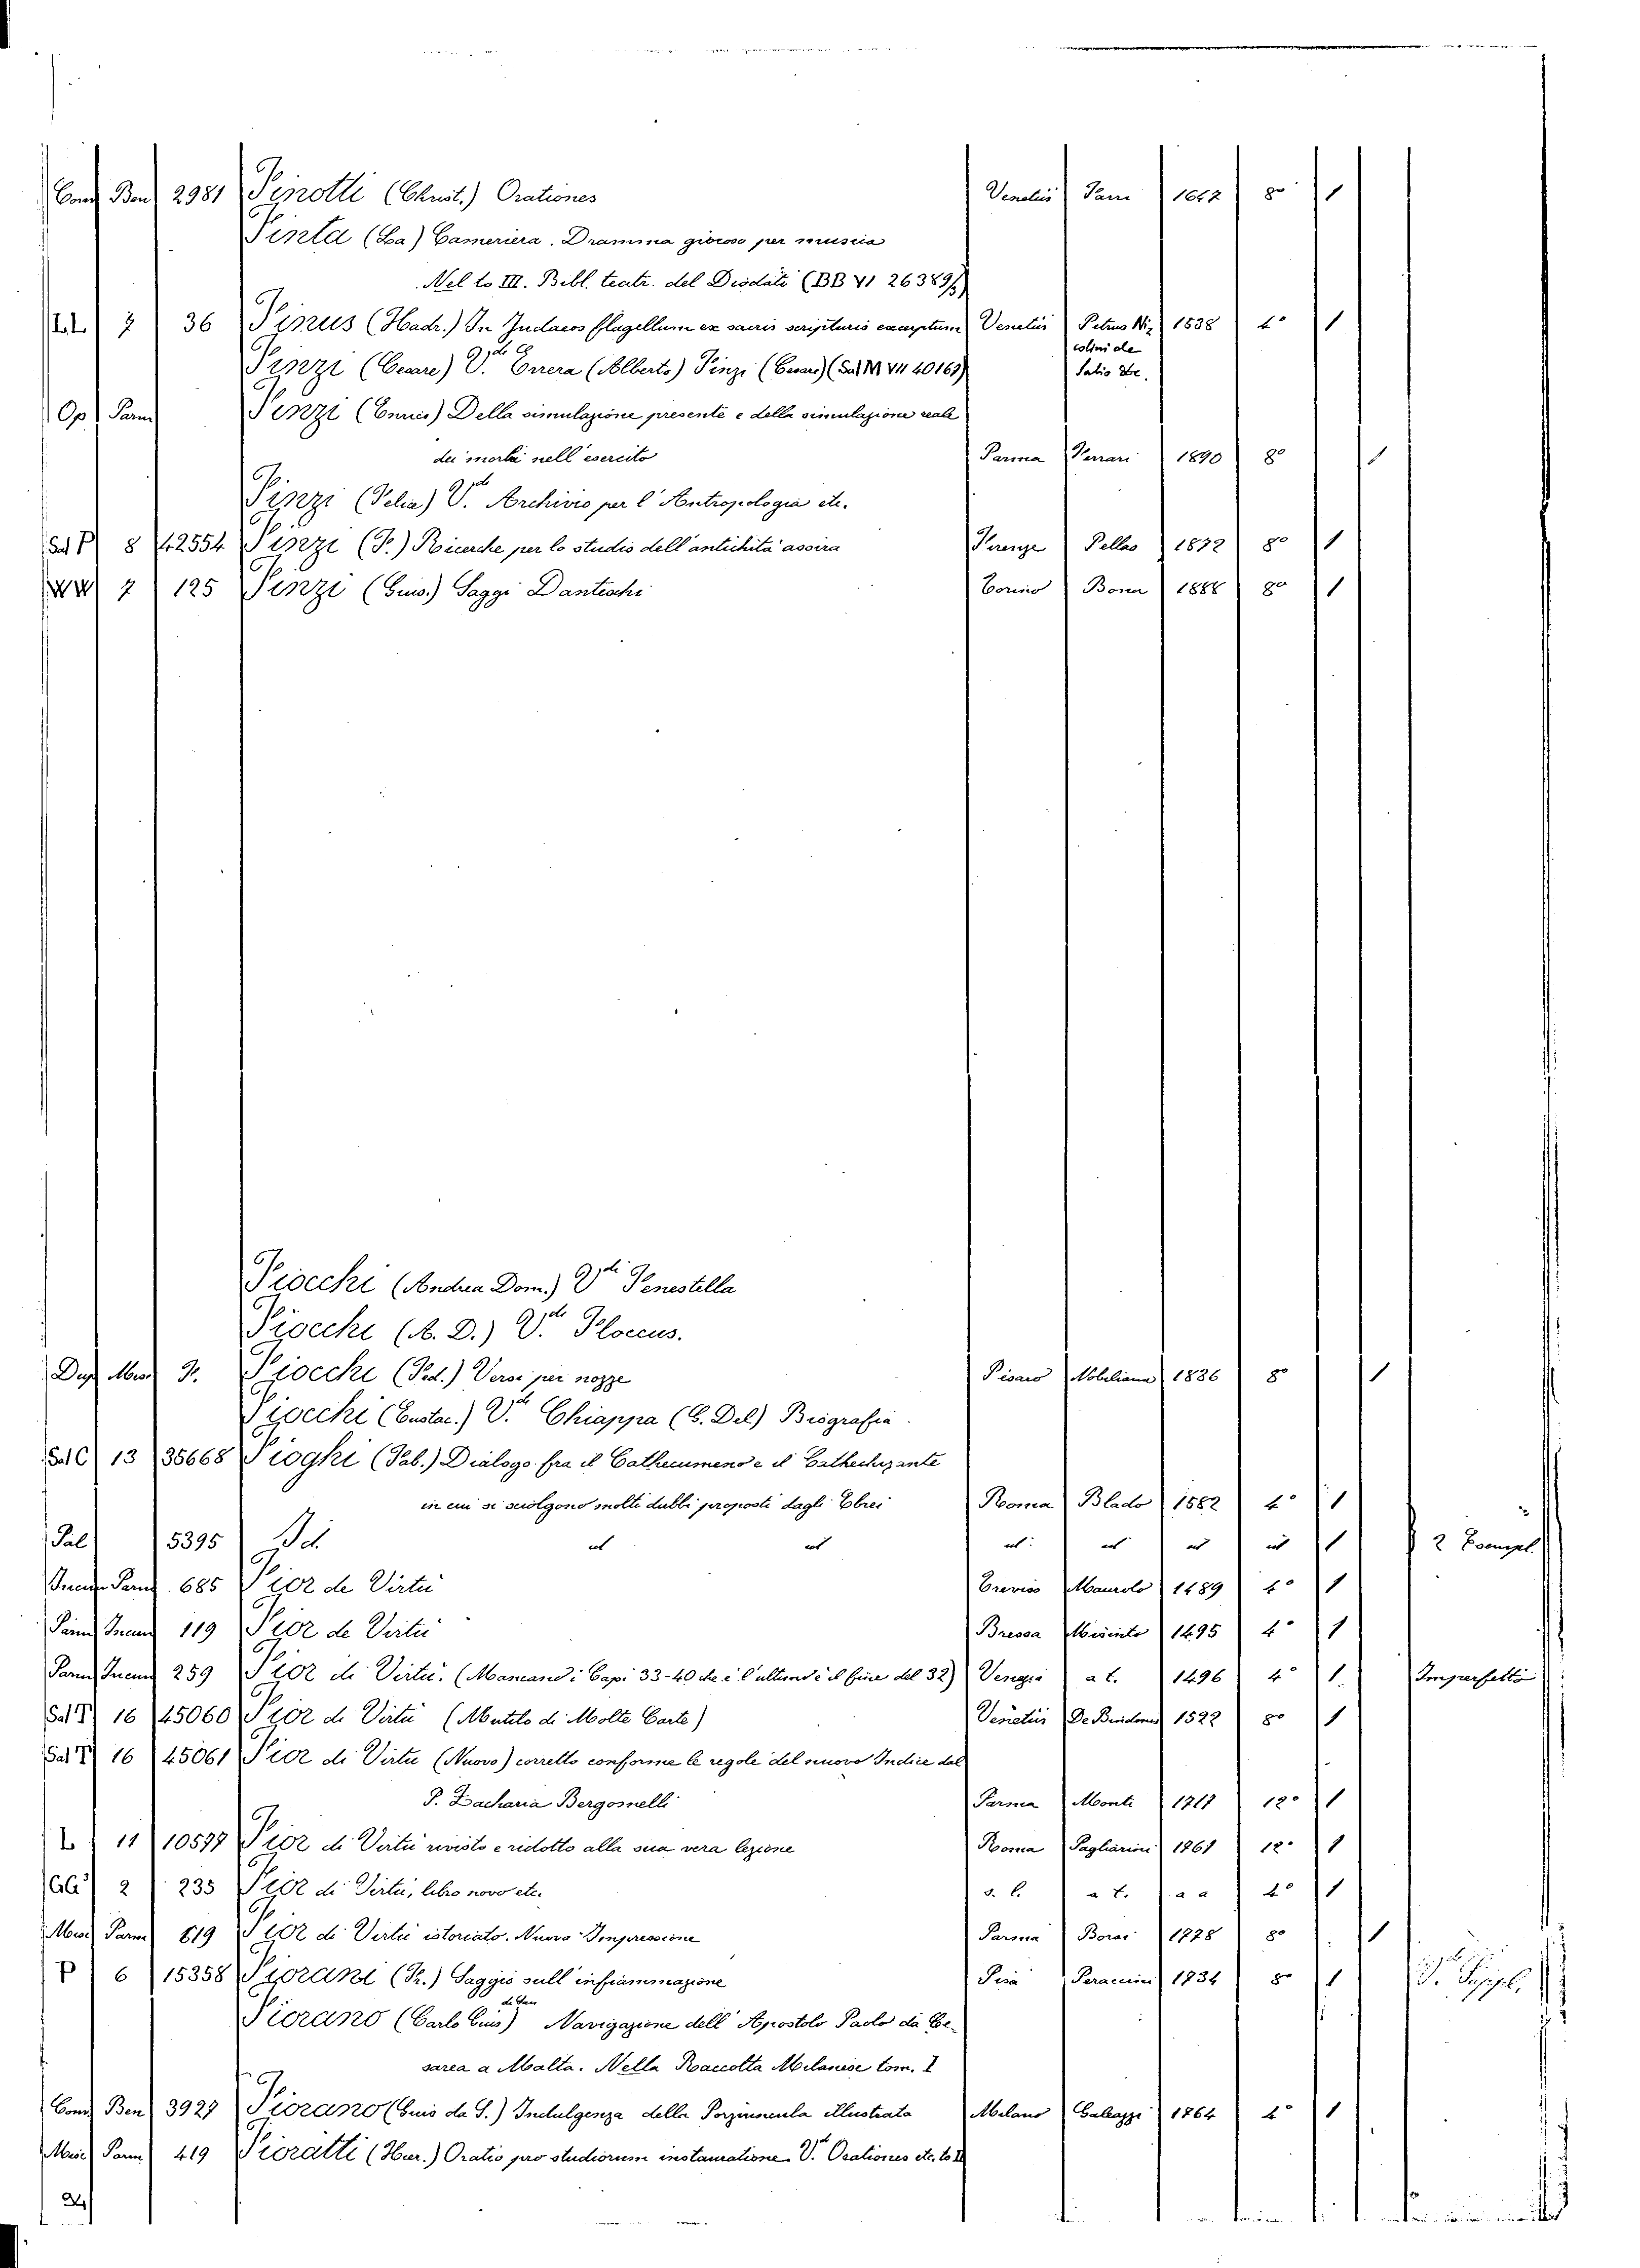 Conv Ben 2981 Finotti (Christ.) Orationes Venetiis Pauri 1647 8° 1
Finta (La) Cameriera. Dramma giocoso per musica
Nel to III. Bibl. teatr. del Diodati (BB VI 26389/)
LL 7 36 Finus (Hadr.) In Judaeos flagellum ex sacris scripturis excerptum Venetiis Petrus Ni- 1538 4° 1
colini de
Finzi (Cesare) V.de Errera (Alberto) Finzi (Cesare) (Sal M VII 40169) Sabio etc.
Op Parm Finzi (Enrico) Della simulazione presente e della simulazione reale
dei morbi nell'esercito Parma Ferrari 1890 8° 1
Finzi (Felice) V.de Archivio per l'Antropologia etc.
Sal P 8 42554 Finzi (F.) Ricerche per lo studio dell'antichità assira Firenze Pellas 1872 8° 1
7 125 Finzi (Gius.) Saggi Danteschi Torino Bona 1888 8° 1
Fiocchi (Andrea Dom.) V.de Fenestella
Fiocchi (A. D.) V.de Floccus.
Dup Misc F. Fiocchi (Fed.) Versi per nozze Pisaro Nobeliana 1836 8° 1
Fiocchi (Eustac.) V.de Chiappa (G. Del) Biografia.
Sal C 13 35668 Fioghi (Fab.) Dialogo fra il Cathecumeno e il Cathechizante
in cui si sciolgono molti dubbi proposti dagli Ebrei Roma Blado 1582 4° 1
Pal 5395 Id. id id id: id id id 1 2 Esempl.
Incun Parm. 685 Fior de Virtù Trevixo Manzolo 1489 4° 1
Parm Incun 119 Fior de Virtù Bressa Misinto 1495 4° 1
Parm Incun 259 Fior di Virtù. (Mancano i Capi 33-40 che è l'ultimo e il fine del 32) Venezia a t. 1496 4° 1. Imperfetto
Sal T 16 45060 Fior di Virtù (Mutilo di Molte Carte) Venetiis De Bindonis 1522 8° 1
Sal T 16 45061 Fior di Virtù (Nuovo) corretto conforme le regole del nuovo Indice dal
P. Zacharia Bergomelli Parma Monti 1717 12° 1
L 11 10577 Fior di Virtù rivisto e ridotto alla sua vera lezione Roma Pagliarini 1761 12° 1
GG 2 235 Fior di Virtù, libro novo etc. s. l. a t. a a 4° 1
Misc Parm 819 Fior de Virtù istoriato. Nuova Impressione Parma Borsi 1778 8° 1
P 6 15358 Fiorani (Fr.) Saggio sull'infiammazione Pisa Peraccini 1834 8° 1 V. Suppl.
da San
Fiorano (Carlo Gius) Navigazione dell'Apostolo Paolo da Ce-
sarea a Malta. Nella Raccolta Milanese tom. I
Conv Ben 3927 Fiorano (Gius da S.) Indulgenza della Porziuncula illustrata Milano Galeazzi 1764 4° 1
Misc Parm 419 Fioratti (Hier.) Oratio pro studiorum instauratione. V.de Orationes etc. to II